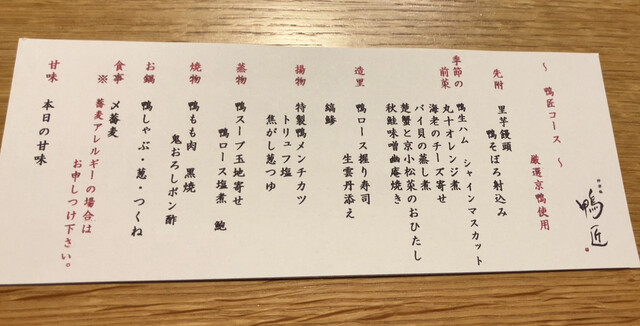 鴨匠
～ 鴨匠コース ～
厳選京鴨使用
先附
里芋饅頭
鴨そぼろ射込み
季節の
前菜
鴨生ハム シャインマスカット
丸十オレンジ煮
海老のチーズ寄せ
バイ貝の蒸し煮
楚蟹と京小松菜のおひたし
秋鮭味噌幽庵焼き
造里
鴨ロース握り寿司
生雲丹添え
縞鯵
揚物
特製鴨メンチカツ
トリュフ塩
焦がし葱つゆ
蒸物
鴨スープ玉地寄せ
鴨ロース塩煮 鮑
焼物
鴨もも肉 黒焼
鬼おろしポン酢
お鍋
鴨しゃぶ・葱・つくね
食事
〆蕎麦
※ 蕎麦アレルギーの場合は
お申しつけ下さい。
甘味
本日の甘味